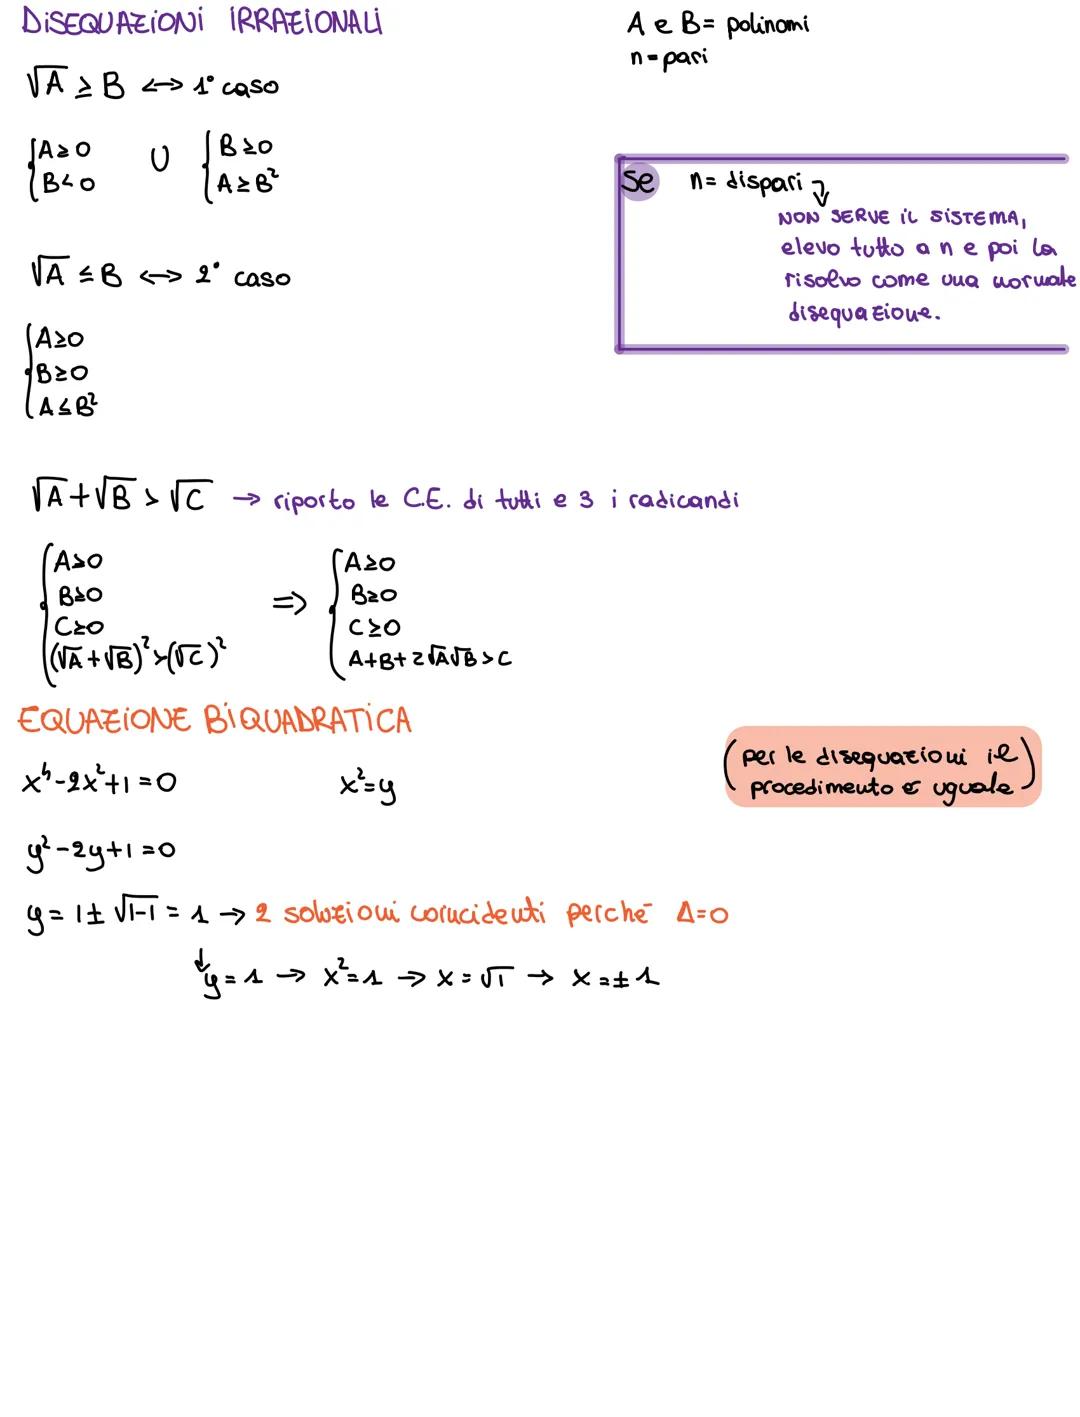 DISEQUAZIONI IRRAZIONALI
A e B= polinomi
n=pari
√A ≥ B ⟷ 1° caso
{A≥0 U {B≥0
B<0 A≥B²
Se n= dispari
NON SERVE IL SISTEMA,
elevo tutto a n e poi la
risolvo come una normale
disequazione.
√A ≤ B ⟷ 2° caso
A≥0
B≥0
A≤B²
√A+√B > √C → riporto le C.E. di tutti e 3 i radicandi
A≥0 A≥0
B≥0 ⇒ B≥0
C≥0 C≥0
(√A+√B)²>(√C)² A+B+2√A√B>C
EQUAZIONE BIQUADRATICA
(per le disequazioni il
procedimento è uguale)
x⁴-2x²+1=0 x²=y
y²-2y+1=0
y= 1± √1-1 = 1 → 2 soluzioni coincidenti perché Δ=0
↓ y=1 → x²=1 → x=√1 → x=±1